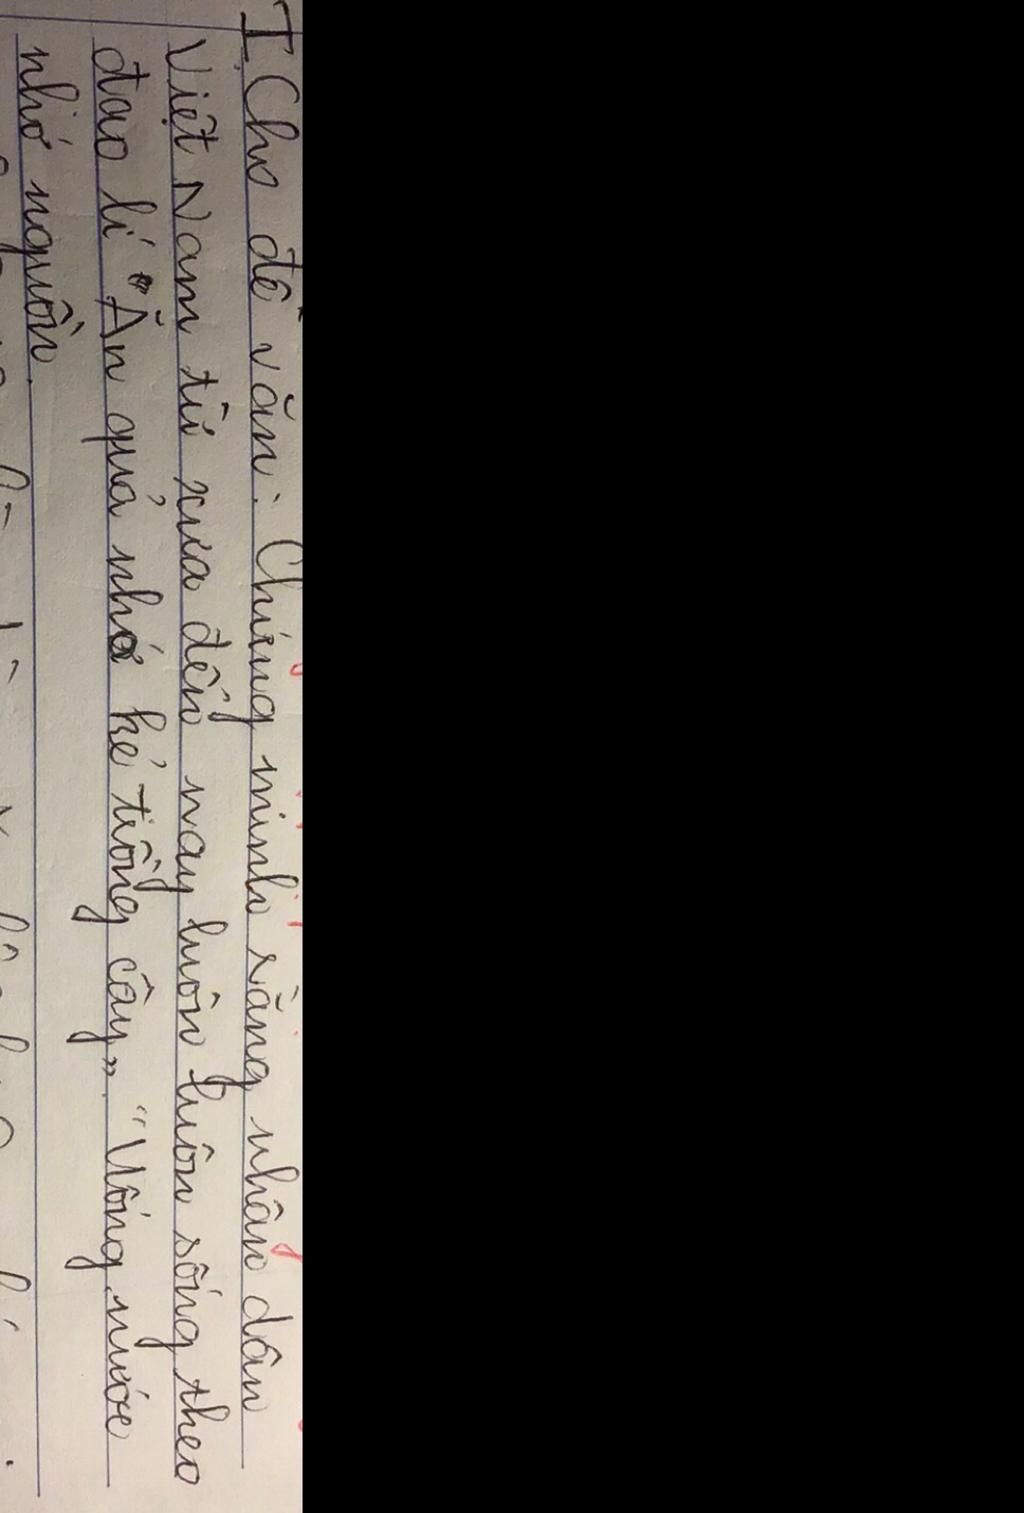 I. Cho đề văn: Chứng minh rằng nhân dân
Việt Nam từ xưa đến nay luôn luôn sống theo
đạo lí "Ăn quả nhớ kẻ trồng cây". "Uống nước
nhớ nguồn.